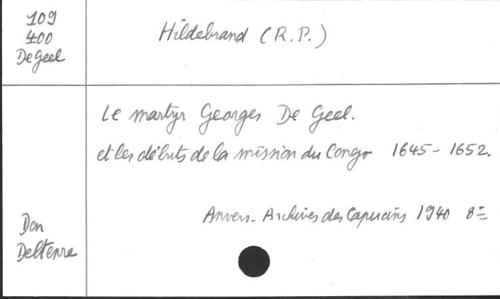 109
400
De Geel
Hildebrand (R.P.)
Le martyr Georges De Geel.
et les débuts de la mission du Congo 1645-1652.
Anvers. Archives des Capucins 1940 8=
Don
Delterre